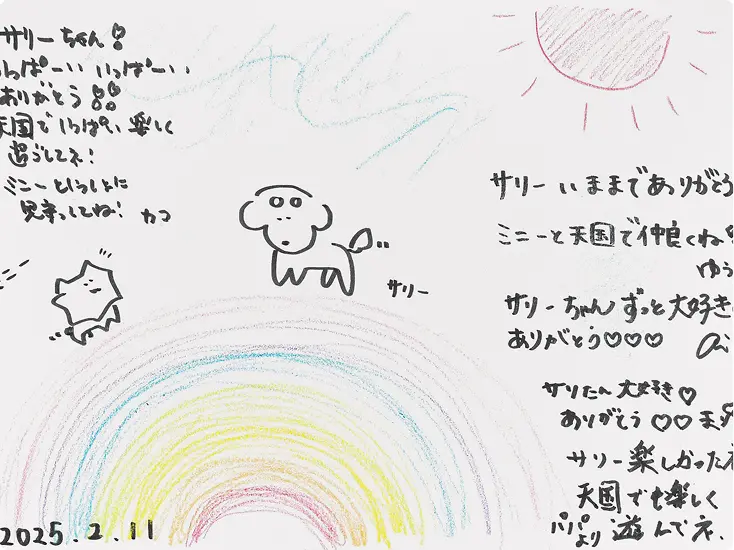 サリーちゃん！
いっぱーい いっぱーい
ありがとう!!
天国でいっぱい楽しく
過ごしてネ！
ミニーといっしょに
見守っててね！ カコ
サリー
サリー いままでありがとう
ミニーと天国で仲良くね
ゆう
サリーちゃんずっと大好き
ありがとう♡♡♡
サリたん 大好き♡
ありがとう♡♡
サリー楽しかったネ
天国でも楽しく
パパより 遊んでネ.
2025.2.11